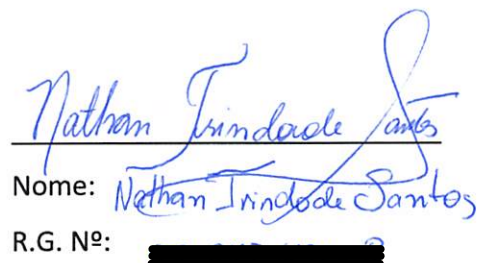 Nathan Trindade Santos
Nome: Nathan Trindade Santos
R.G. Nº: